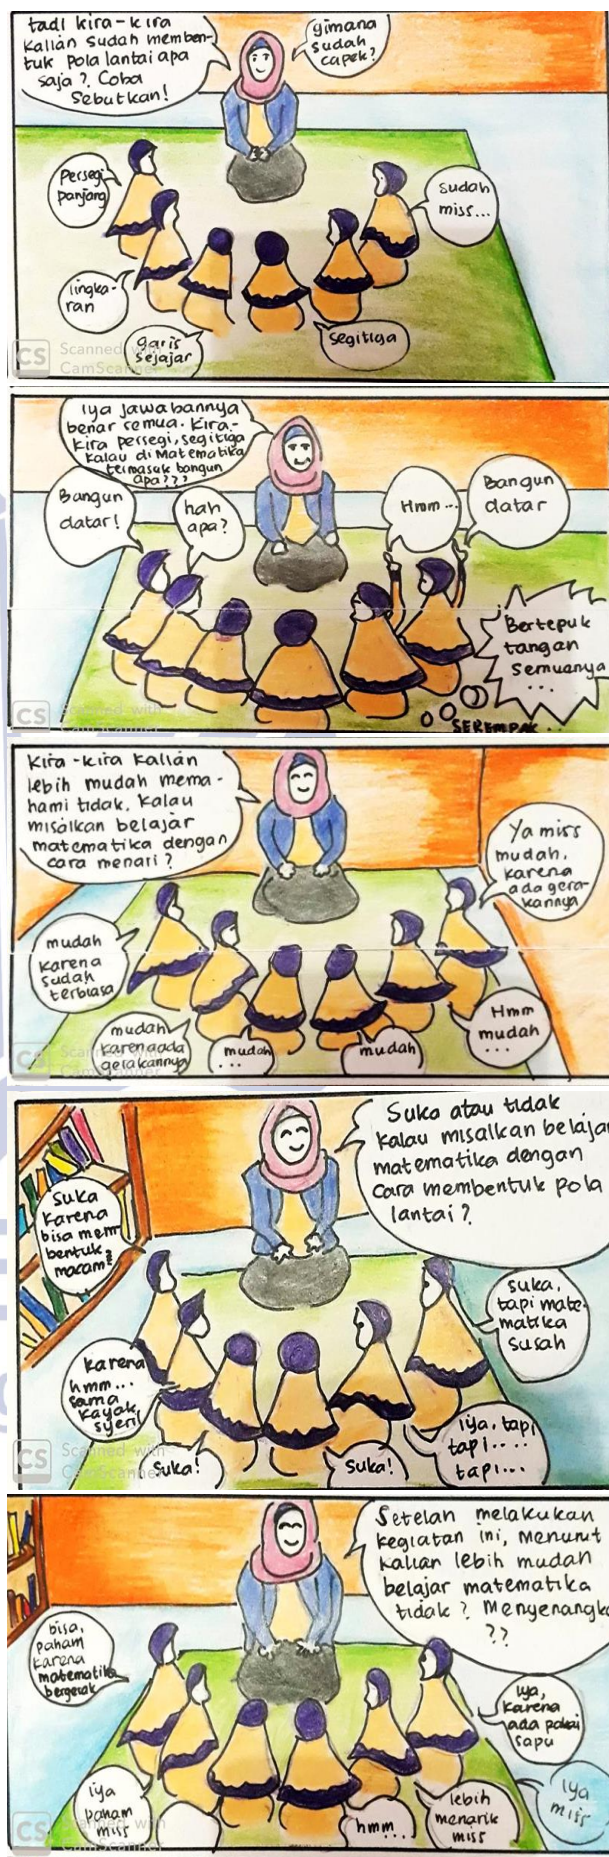 tadi kira-kira
kalian sudah memben-
tuk pola lantai apa
saja? Coba
Sebutkan!
gimana
sudah
capek?
Persegi
panjang
Sudah
miss...
lingka-
ran
garis
sejajar
segitiga
CS Scanned with
CamScanner
Iya jawabannya
benar semua. Kira-
kira persegi, segitiga
kalau di Matematika
termasuk bangun
apa???
Bangun
datar!
hah
apa?
Hmm...
Bangun
datar
Bertepuk
tangan
semuanya
...
SEREMPAK..
CS Scanned with
CamScanner
Kira-kira kalian
lebih mudah mema-
hami tidak, kalau
misalkan belajar
matematika dengan
cara menari?
Ya miss
mudah,
karena
ada gera-
kannya
mudah
karena
sudah
terbiasa
mudah
karena ada
gerakannya
mudah
...
mudah
Hmm
mudah
...
CS Scanned with
CamScanner
Suka atau tidak
kalau misalkan belajar
matematika dengan
cara membentuk pola
lantai?
Suka
karena
bisa mem
bentuk
macam²
suka,
tapi mate-
matika
susah
karena
hmm...
sama
kayak
syeril
suka!
suka!
iya, tapi
tapi....
tapi...
CS Scanned with
CamScanner
Setelah melakukan
kegiatan ini, menurut
kalian lebih mudah
belajar matematika
tidak? Menyenangka
??
bisa,
paham
karena
matematika
bergerak
iya,
karena
ada pakai
sapu
iya
paham
miss
hmm...
lebih
menarik
miss
iya
miss
CS Scanned with
CamScanner